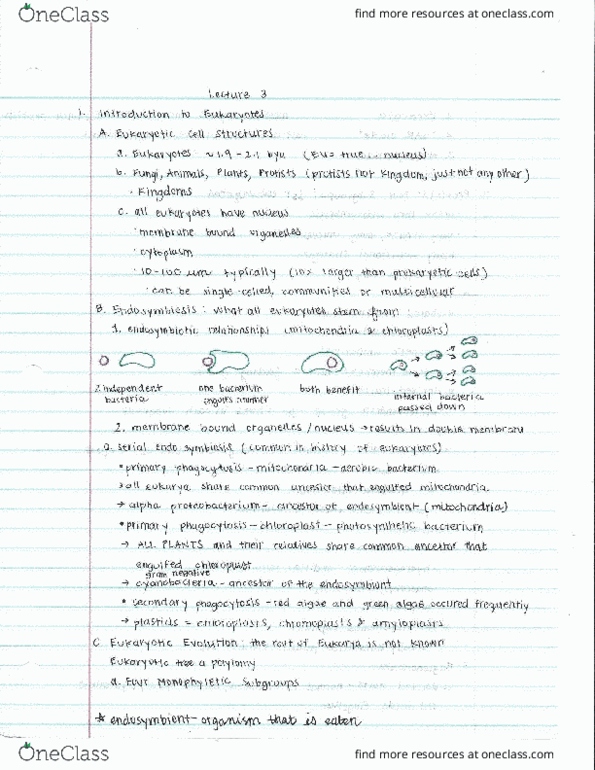 OneClass
find more resources at oneclass.com
Lecture 3
1. Introduction to Eukaryotes
A. Eukaryotic cell structures
a. Eukaryotes ~1.9-2.1 bya (Eu = true ... nucleus)
b. Fungi, Animals, Plants, Protists (protists not kingdom, just not any other)
· Kingdoms
c. all eukaryotes have nucleus
· membrane bound organelles
· cytoplasm
· 10-100 um typically (10x larger than prokaryotic cells)
· can be single-celled, communities or multicellular
B. Endosymbiosis: what all eukaryotes stem from
1. endosymbiotic relationships (mitochondria & chloroplasts)
2 independent bacteria
one bacterium engulfs another
both benefit
internal bacteria passed down
2. membrane bound organelles / nucleus → results in double membrane
a. serial endo symbiosis (common in history of eukaryotes)
• primary phagocytosis - mitochondria - aerobic bacterium
→ all eukarya share common ancestor that engulfed mitochondria
→ alpha proteobacterium - ancestor of endosymbient (mitochondria)
• primary phagocytosis - chloroplast - photosynthetic bacterium
→ ALL PLANTS and their relatives share common ancestor that
engulfed chloroplast
gram negative
→ cyanobacteria - ancestor of the endosymbiont
• secondary phagocytosis - red algae and green algae occured frequently
→ plastids = chloroplasts, chromoplasts & amyloplasts
C. Eukaryotic Evolution: the root of Eukarya is not known
Eukaryotic tree a polytomy
a. Four Monophyletic Subgroups
★ endosymbient - organism that is eaten
OneClass
find more resources at oneclass.com